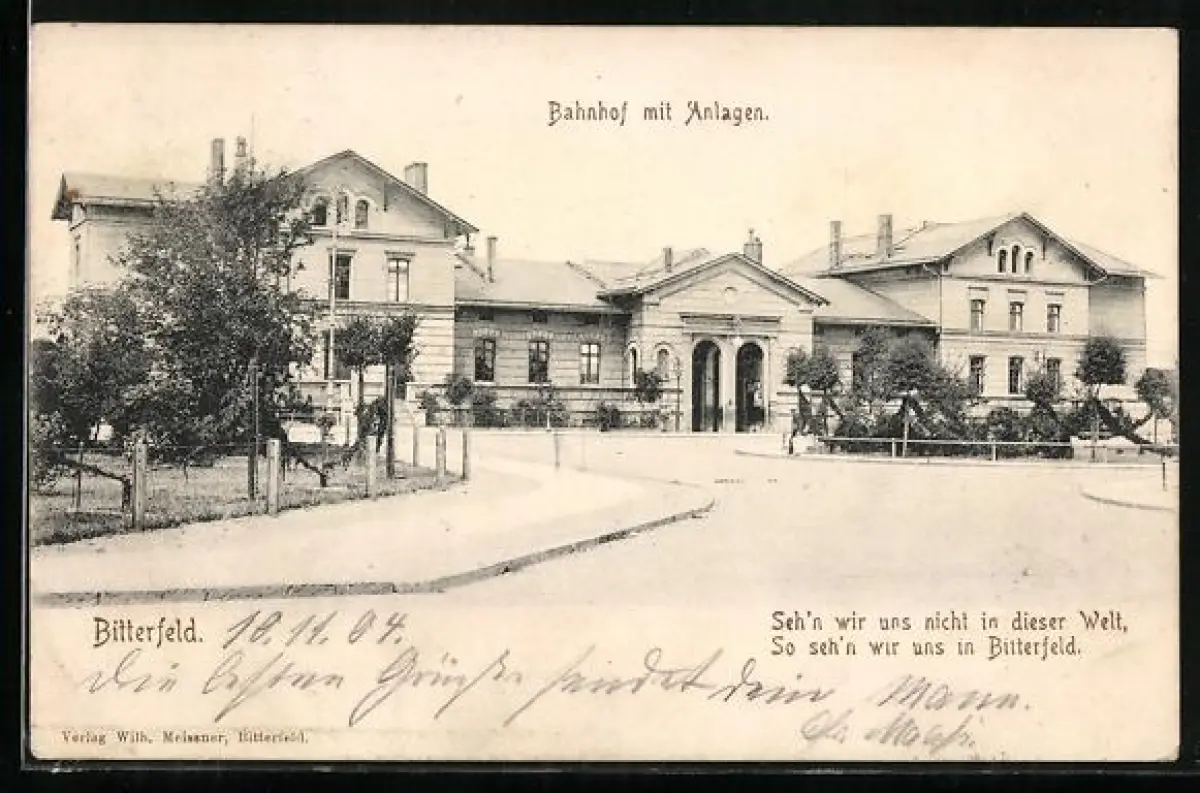 Bahnhof mit Anlagen.
Bitterfeld. 10.11.04.
Seh'n wir uns nicht in dieser Welt,
So seh'n wir uns in Bitterfeld.
Die besten Grüße sendet dein Mann.
Verlag Wilh. Meissner, Bitterfeld.